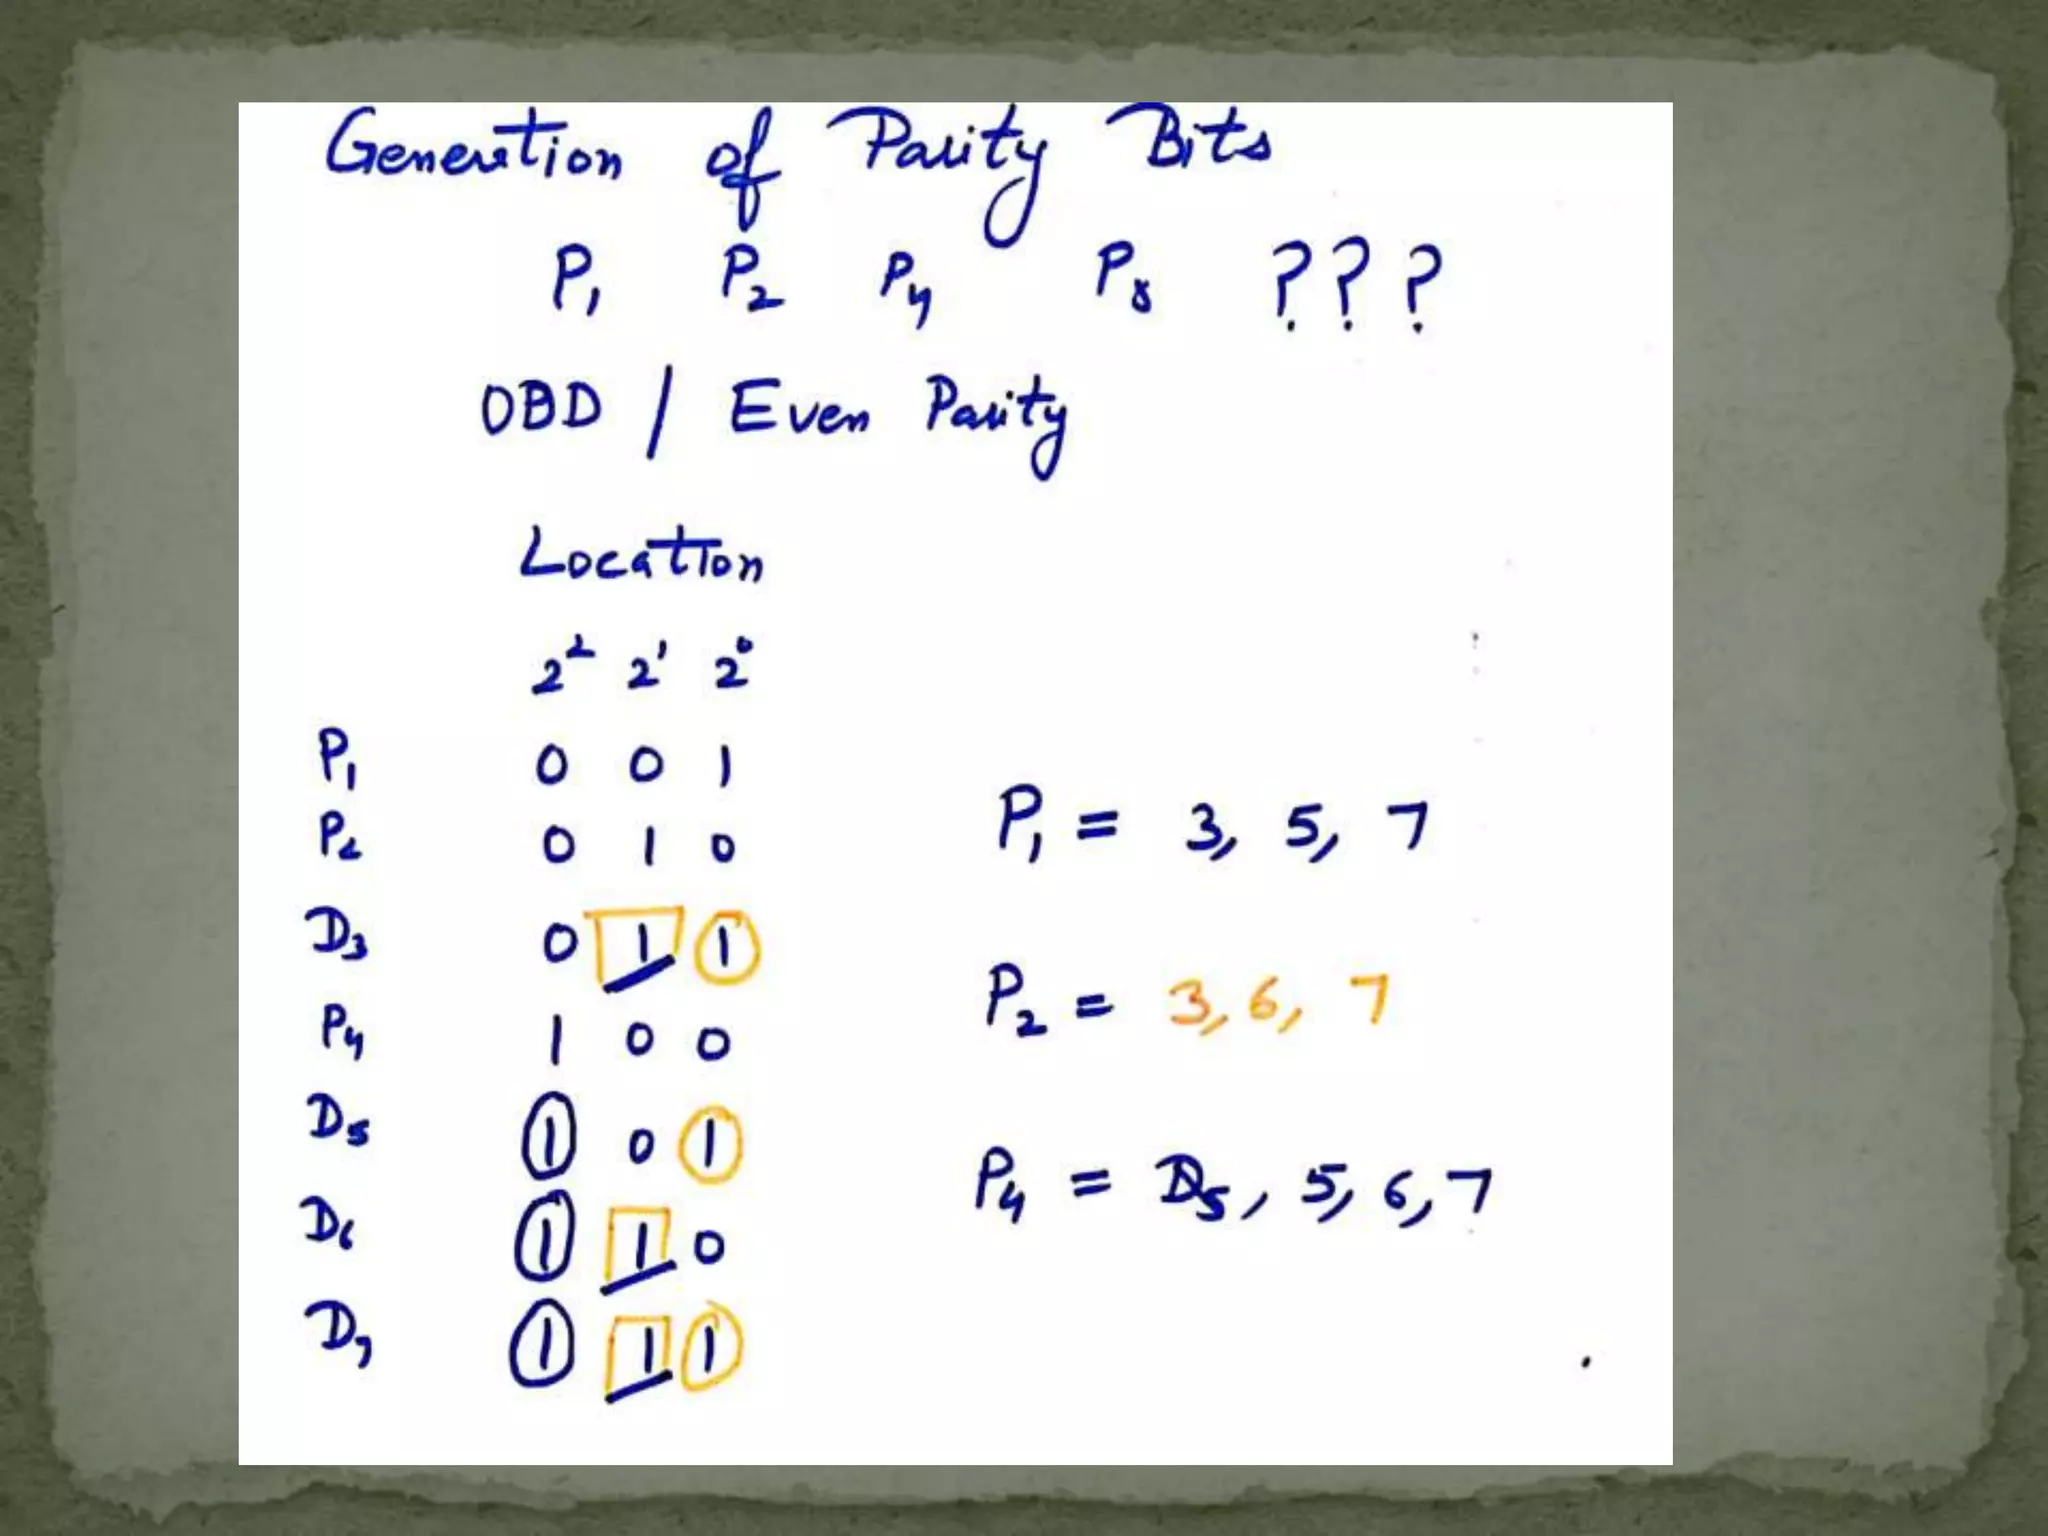 Generation of Parity Bits
P₁ P₂ P₄ P₈ ???
ODD / Even Parity
Location
2² 2¹ 2⁰
P₁ 0 0 1
P₂ 0 1 0
D₃ 0 1 1
P₄ 1 0 0
D₅ 1 0 1
D₆ 1 1 0
D₇ 1 1 1
P₁ = 3, 5, 7
P₂ = 3, 6, 7
P₄ = D₅, 5, 6, 7